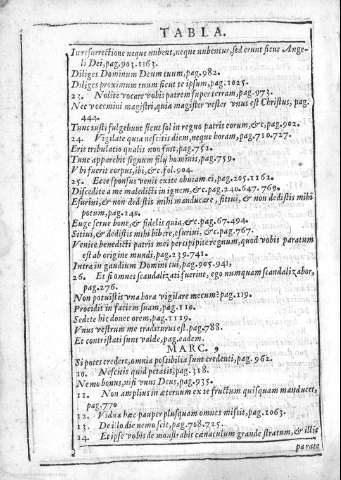 TABLA.
In resurrectione neque nubent, neque nubentur, sed erunt sicut Ange-
li Dei, pag. 903. 1163.
Diliges Dominum Deum tuum, pag. 982.
Diliges proximum tuum sicut te ipsum, pag. 1025.
23. Nolite vocare vobis patrem super terram, pag. 973.
Nec vocemini magistri, quia magister vester vnus est Christus, pag.
444.
Tunc iusti fulgebunt sicut sol in regno patris eorum, &c, pag. 902.
24. Vigilate quia nescitis diem, neque horam, pag. 710. 727.
Erit tribulatio qualis non fuit, pag. 752.
Tunc apparebit signum filij hominis, pag. 759.
Vbi fuerit corpus, ibi, &c. fol. 904.
25. Ecce sponsus venit exite obuiam ei, pag. 205. 1162.
Discedite a me maledicti in ignem, &c. pag. 240. 647. 769.
Esuriui, & non dedistis mihi manducare, sitiui, & non dedistis mihi
potum, pag. 240.
Euge serue bone, & fidelis quia, &c. pag. 67. 494.
Sitiui, & dedistis mihi bibere, esuriui, &c. pag. 767.
Venite benedicti patris mei percipite regnum, quod vobis paratum
est ab origine mundi, pag. 239. 741.
Intra in gaudium Domini tui, pag. 905. 941.
26. Et si omnes scandalizati fuerint, ego numquam scandalizabor,
pag. 276.
Non potuistis vna hora vigilare mecum? pag. 119.
Procidit in faciem suam, pag. 110.
Sedete hic donec orem, pag. 1119.
Vnus vestrum me traditurus est. pag. 788.
Et contristati sunt valde, pag. eadem.
MARC.
Si potes credere, omnia possibilia sunt credenti, pag. 962.
10. Nescitis quid petatis, pag. 318.
Nemo bonus, nisi vnus Deus, pag. 935.
11. Non amplius in æternum ex te fructum quisquam manducet,
pag. 770
12. Vidua hæc pauper plusquam omnes misit, pag. 1063.
13. De illo die nemo scit, pag. 708. 725.
14. Et ipse vobis demonstrabit cænaculum grande stratum, & illic
parate